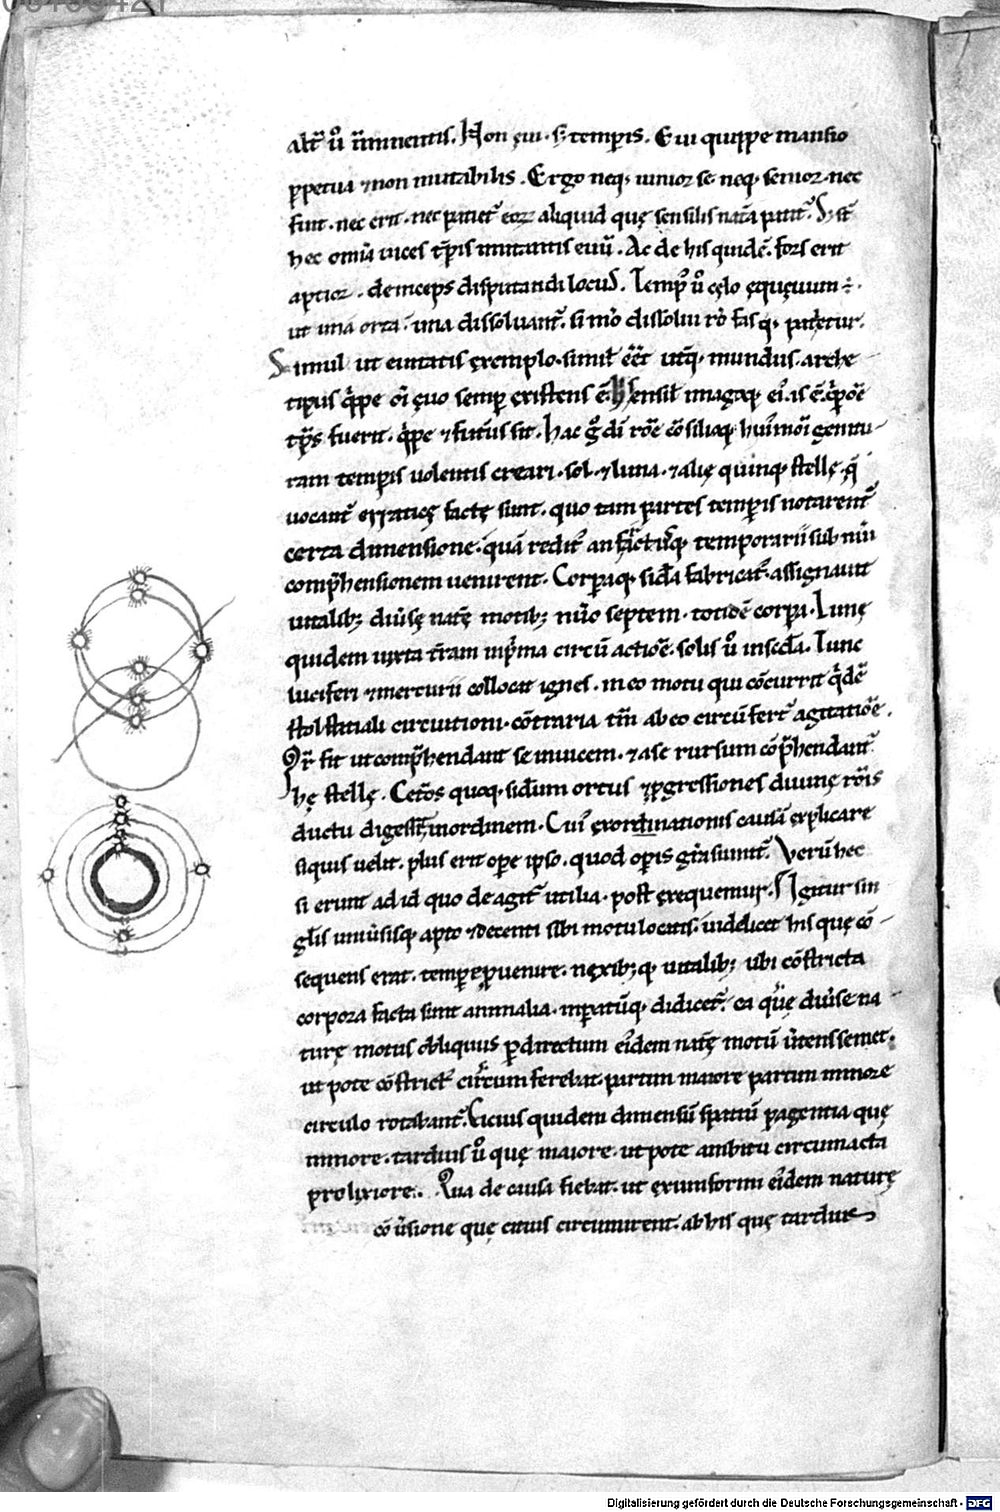 alt̄ u̾ īminentis. Non ęui. s; temꝑis. Eui quippe mansio
ꝑpetua ⁊ non mutabilis. Ergo neq; iunior se. neq; senior. nec
fuit. nec erit. nec patiet᷒ eoꝝ aliquid quę sensilis nat̄a patit᷒. S; st̄
hec om̄ia uices tp̄ris imitantis euū. Ac de his quidē. fors erit
aptior. deinceps disputandi locus. Temp᷒ u̾ cęlo ęquęuum ÷.
ut una orta. una dissoluant᷒. si m̊o dissolui rō fasq; patietur.
Simul ut eiutatis exemplo. similꝭ eēt utq; mundus. arche
tipus q̾ppe om̄i ęuo semꝑ existens ē. hic sensilꝭ imagoq; ei᷒. is ē. q̾ ꝑ om̄e
tp̄s fuerit. q̾ppe ⁊ futur᷒ sit. Hac g̊ di rōe cōsilioq; hui᷒modi genitu-
ram temꝑis uolentis creari. sol. ⁊ luna. ⁊ alię quinq; stellę. q̄
uocant᷒ erraticę factę sunt. quo tam partes temꝑis notarent᷒
certa dimensione. quā redit᷒ anfractusq; temporarii sub num̄i
comp̄hensionem uenirent. Corꝑaq; sid̾a fabricat᷒. assignauit
uitalib; diuersę nat̄ę motib; num̄o septem. totidē corꝑa. Lunę
quidem iuxta t̾ram in p̾ma circū actiōe. solis u̾ in sec̄da. Tunc
luciferi ⁊ mercurii collocat ignes. in eo motu qui cōcurrit q̾dē
solstitiali circuitioni. cōtraria tm̄ ab eo circūfert᷒ agitatiōe.
Qr̄ fit ut comp̄hendant se inuicem. ⁊ a se rursum cōp̄hendant᷒
hę stellę. Cet̾os quoq; sid̾um ortus ⁊ ꝓgressiones diuinę rōis
ductu digessit in ordinem. Cui᷒ exordinationis causā explicare
siquis uelit. plus erit oꝑe ipso. quod oꝑis gr̄a sumit᷒. Verū hec
si erunt ad id quo de agit᷒ utilia. post exequemur. Igitur sin
gl̄is uniu̾sisq; apto ⁊ decenti sibi motu locatis. uidelicet his quę cō
sequens erat. temꝑe ꝓuenire. nexib;q; uitalib; ubi cōstricta
corpora facta sunt animalia. imꝑatūq; didicer̄t. ea q̾ę diu̾se na
turę motus obliquus ꝑ directum ei᷒dem nat̄ę motū u̾tens semet.
ut pote cōstrict᷒ circum ferebat. partim maiore partim minore
circulo rotabant᷒. Cicius quidem dimensū spatiū ꝑagentia quę
minore. tardius u̾ quę maiore. ut pote ambitu circumacta
prolixiore. Qua de causa fiebat. ut ex uniformi ei᷒dem naturę
cō u̾sione quę citius circumirent. ab his quę tardius
Digitalisierung gefördert durch die Deutsche Forschungsgemeinschaft - DFG